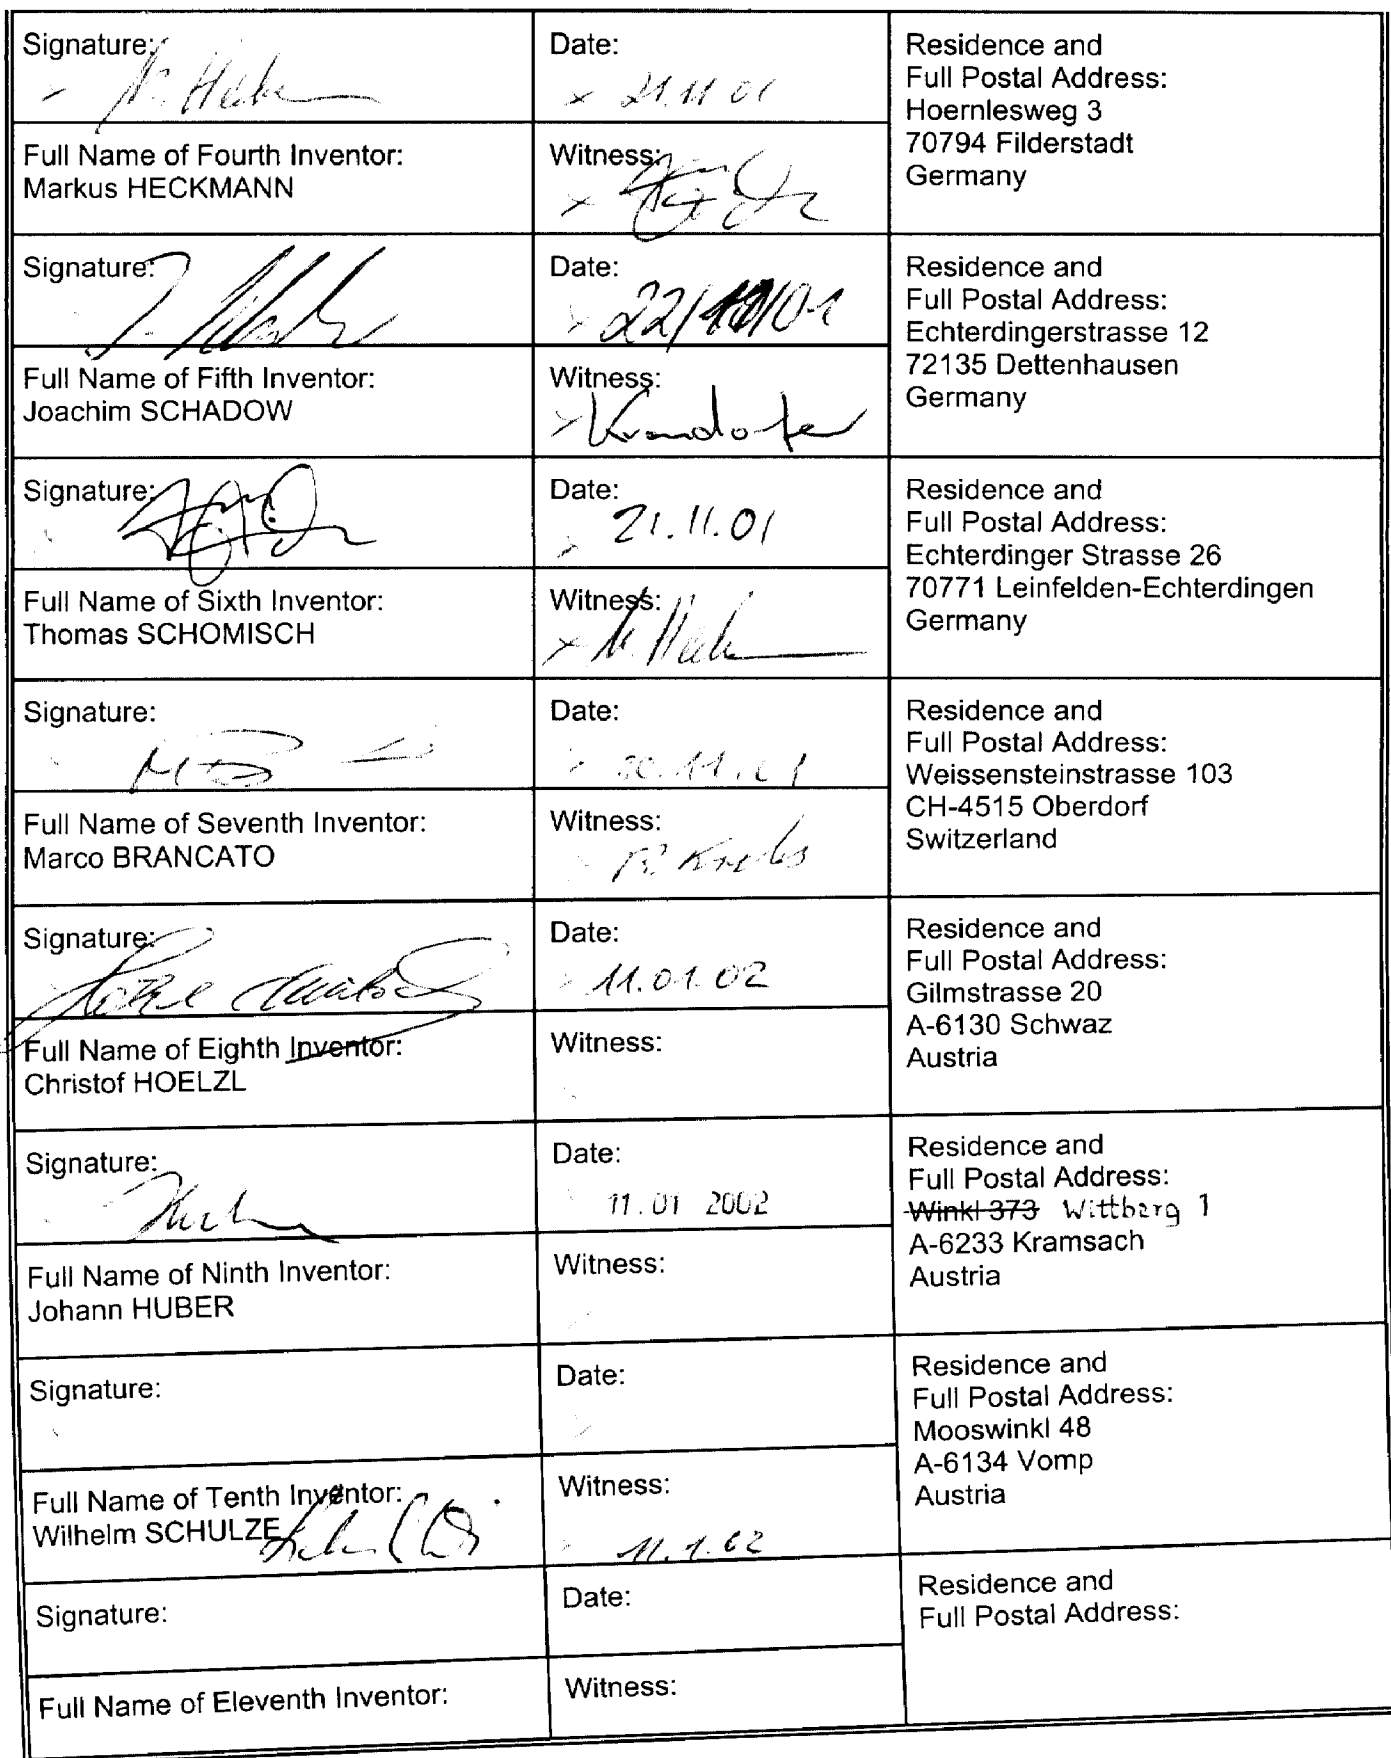 Signature:
Date:
21.11.01
Residence and
Full Postal Address:
Hoernlesweg 3
70794 Filderstadt
Germany
Full Name of Fourth Inventor:
Markus HECKMANN
Witness:
Signature:
Date:
22/11/01
Residence and
Full Postal Address:
Echterdingerstrasse 12
72135 Dettenhausen
Germany
Full Name of Fifth Inventor:
Joachim SCHADOW
Witness:
Signature:
Date:
21.11.01
Residence and
Full Postal Address:
Echterdinger Strasse 26
70771 Leinfelden-Echterdingen
Germany
Full Name of Sixth Inventor:
Thomas SCHOMISCH
Witness:
Signature:
Date:
Residence and
Full Postal Address:
Weissensteinstrasse 103
CH-4515 Oberdorf
Switzerland
Full Name of Seventh Inventor:
Marco BRANCATO
Witness:
Signature:
Date:
11.01.02
Residence and
Full Postal Address:
Gilmstrasse 20
A-6130 Schwaz
Austria
Full Name of Eighth Inventor:
Christof HOELZL
Witness:
Signature:
Date:
11.01 2002
Residence and
Full Postal Address:
Winkl 373 Wittberg 1
A-6233 Kramsach
Austria
Full Name of Ninth Inventor:
Johann HUBER
Witness:
Signature:
Date:
Residence and
Full Postal Address:
Mooswinkl 48
A-6134 Vomp
Austria
Full Name of Tenth Inventor:
Wilhelm SCHULZE
Witness:
11.1.02
Signature:
Date:
Residence and
Full Postal Address:
Full Name of Eleventh Inventor:
Witness: